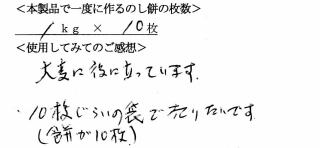 ＜本製品で一度に作るのし餅の枚数＞
1kg × 10枚
＜使用してみてのご感想＞
大変に役に立っています。
・10枚ぐらいの袋で売りたいです
(餅が10枚)